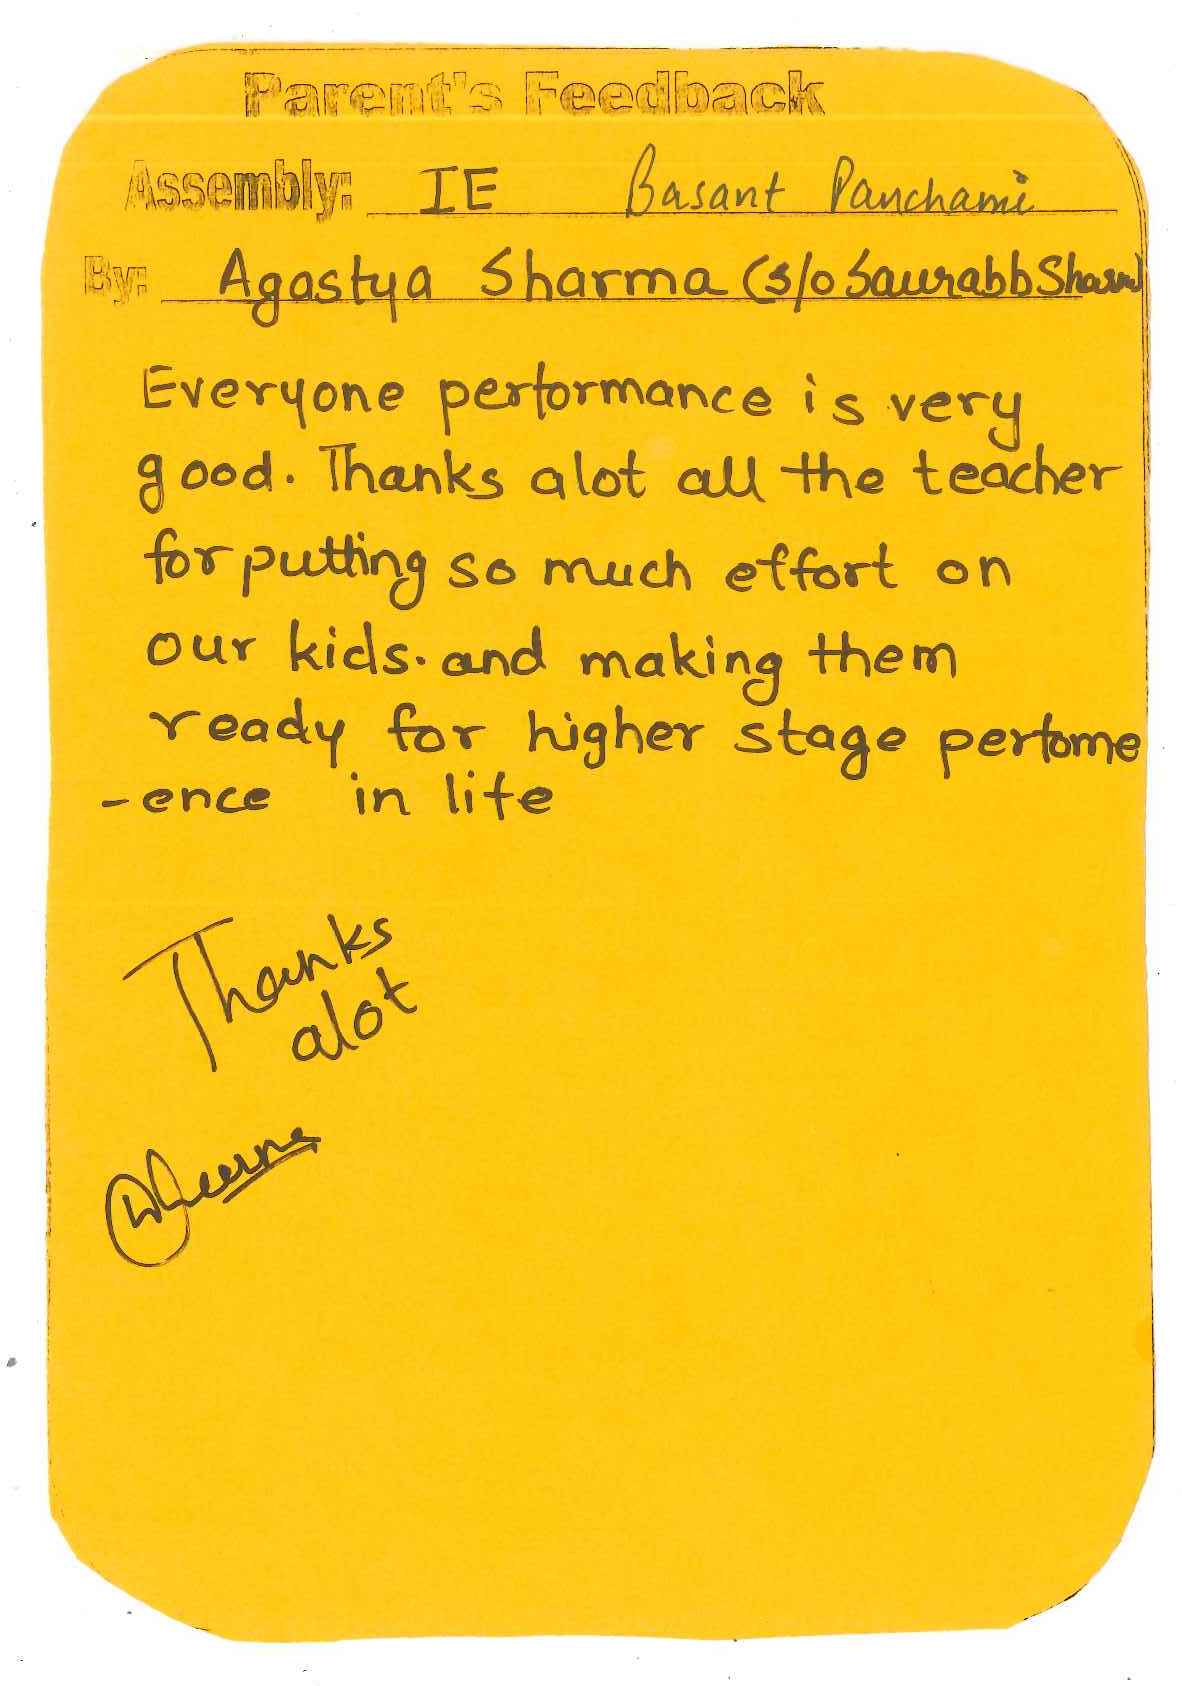 Parent's Feedback
Assembly: IE Basant Panchami
By: Agastya Sharma (s/o Saurabh Sharma)
Everyone performance is very
good. Thanks alot all the teacher
for putting so much effort on
our kids. and making them
ready for higher stage perfome
-ence in life
Thanks
alot